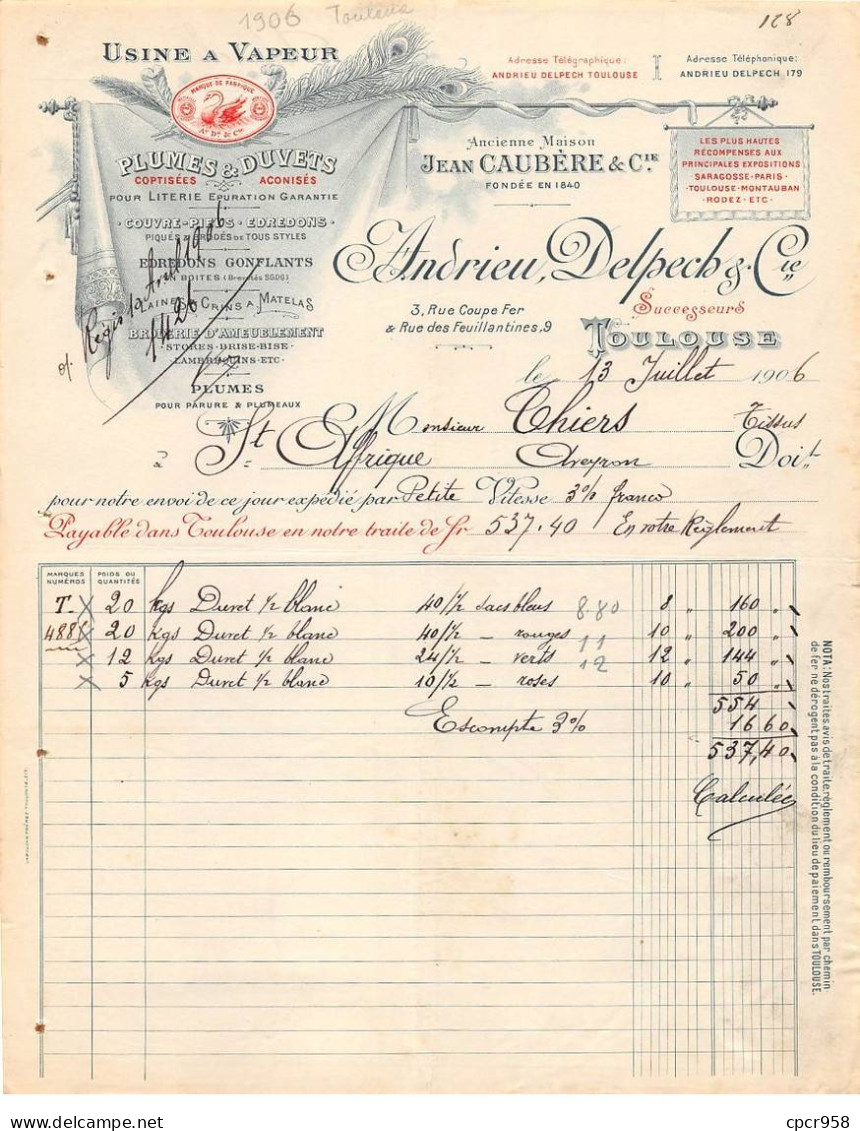 1906 Toulouse
128
USINE A VAPEUR
MARQUE DE FABRIQUE
An Dh & Cie
Adresse Télégraphique:
ANDRIEU DELPECH TOULOUSE
Adresse Téléphonique:
ANDRIEU DELPECH 179
PLUMES & DUVETS
COPTISÉES ACONISÉS
POUR LITERIE EPURATION GARANTIE
COUVRE-PIEDS - EDREDONS
PIQUÉS & BRODÉS DE TOUS STYLES
EDREDONS GONFLANTS
EN BOITES (Brevetés 2506)
LAINES & CRINS A MATELAS
BRODERIE D'AMEUBLEMENT
STORES-BRISE-BISE
LAMBREQUINS-ETC
PLUMES
POUR PARURE & PLUMEAUX
Ancienne Maison
JEAN CAUBÈRE & CIE
FONDÉE EN 1840
LES PLUS HAUTES
RÉCOMPENSES AUX
PRINCIPALES EXPOSITIONS
SARAGOSSE-PARIS-
TOULOUSE-MONTAUBAN
RODEZ-ETC-
Andrieu, Delpech & Cie
Successeurs
3, Rue Coupe Fer
& Rue des Feuillantines, 9
TOULOUSE
1906
1426
le 13 Juillet 1906
Monsieur Thiers Tissus
à St Affrique Aveyron Doit
pour notre envoi de ce jour expédié par Petite Vitesse 3% franco
Payable dans Toulouse en notre traite de fr 537.40 En votre Règlement
MARQUES NUMÉROS POIDS OU QUANTITÉS
T- 20 kgs Duvet 1/2 blanc 40/1/2 sacs bleus 8.80 8 " 160 "
488 20 kgs Duvet 1/2 blanc 40/1/2 - rouges 11 10 " 200 "
12 kgs Duvet 1/2 blanc 24/1/2 - verts 12 12 " 144 "
5 kgs Duvet 1/2 blanc 10/1/2 - roses 10 " 50 "
554 "
Escompte 3% 16 60
537,40
Calculée
NOTA: Nos traites, avis de traite, règlement ou remboursement par chemin
de fer ne dérogent pas à la condition du lieu de paiement dans TOULOUSE.
cpcr958